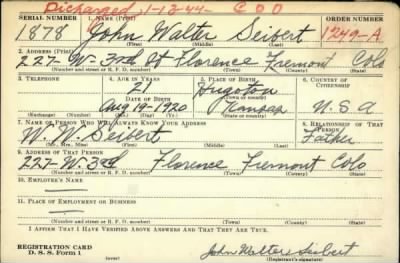 Discharged, 1-12-44- C D D
SERIAL NUMBER 1. NAME (Print) ORDER NUMBER
1878 John Walter Seibert 1249-A
(First) (Middle) (Last)
2. ADDRESS (Print)
227 W- 3rd St Florence Fremont Colo
(Number and street or R. F. D. number) (Town) (County) (State)
3. TELEPHONE 4. AGE IN YEARS 5. PLACE OF BIRTH 6. COUNTRY OF CITIZENSHIP
21 Hugoton
DATE OF BIRTH (Town or county)
Aug 19-1920 Kansas U.S.A
(Exchange) (Number) (Mo.) (Day) (Yr.) (State or country)
7. NAME OF PERSON WHO WILL ALWAYS KNOW YOUR ADDRESS 8. RELATIONSHIP OF THAT PERSON
W. W. Seibert Father
(Mr., Mrs., Miss) (First) (Middle) (Last)
9. ADDRESS OF THAT PERSON
227-W. 3rd Florence Fremont Colo
(Number and street or R. F. D. number) (Town) (County) (State)
10. EMPLOYER'S NAME
—
11. PLACE OF EMPLOYMENT OR BUSINESS
—
(Number and street or R. F. D. number) (Town) (County) (State)
I AFFIRM THAT I HAVE VERIFIED ABOVE ANSWERS AND THAT THEY ARE TRUE.
REGISTRATION CARD
D. S. S. Form 1 John Walter Seibert
(Registrant's signature)